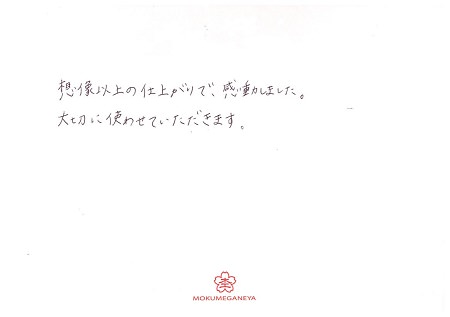 想像以上の仕上がりで、感動しました。
大切に使わせていただきます。
MOKUMEGANEYA